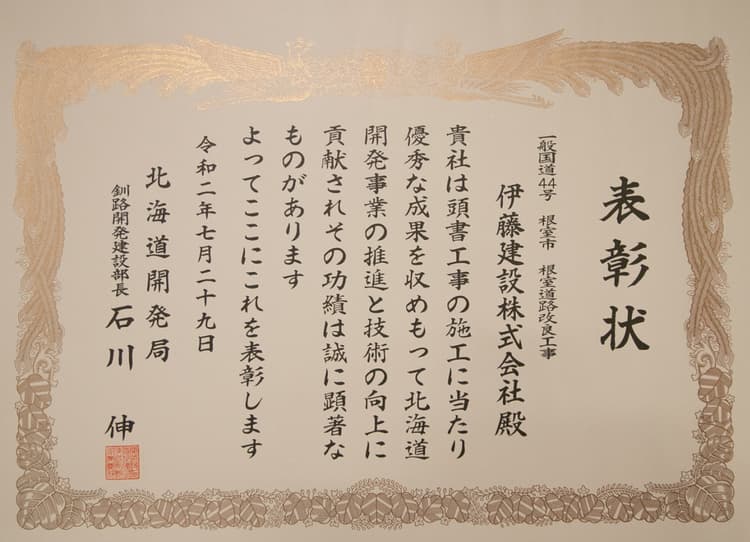 表彰状
一般国道44号 根室市 根室道路改良工事
伊藤建設株式会社殿
貴社は頭書工事の施工に当たり
優秀な成果を収めもって北海道
開発事業の推進と技術の向上に
貢献されその功績は誠に顕著な
ものがあります
よってここにこれを表彰します
令和二年七月二十九日
北海道開発局
釧路開発建設部長 石川 伸